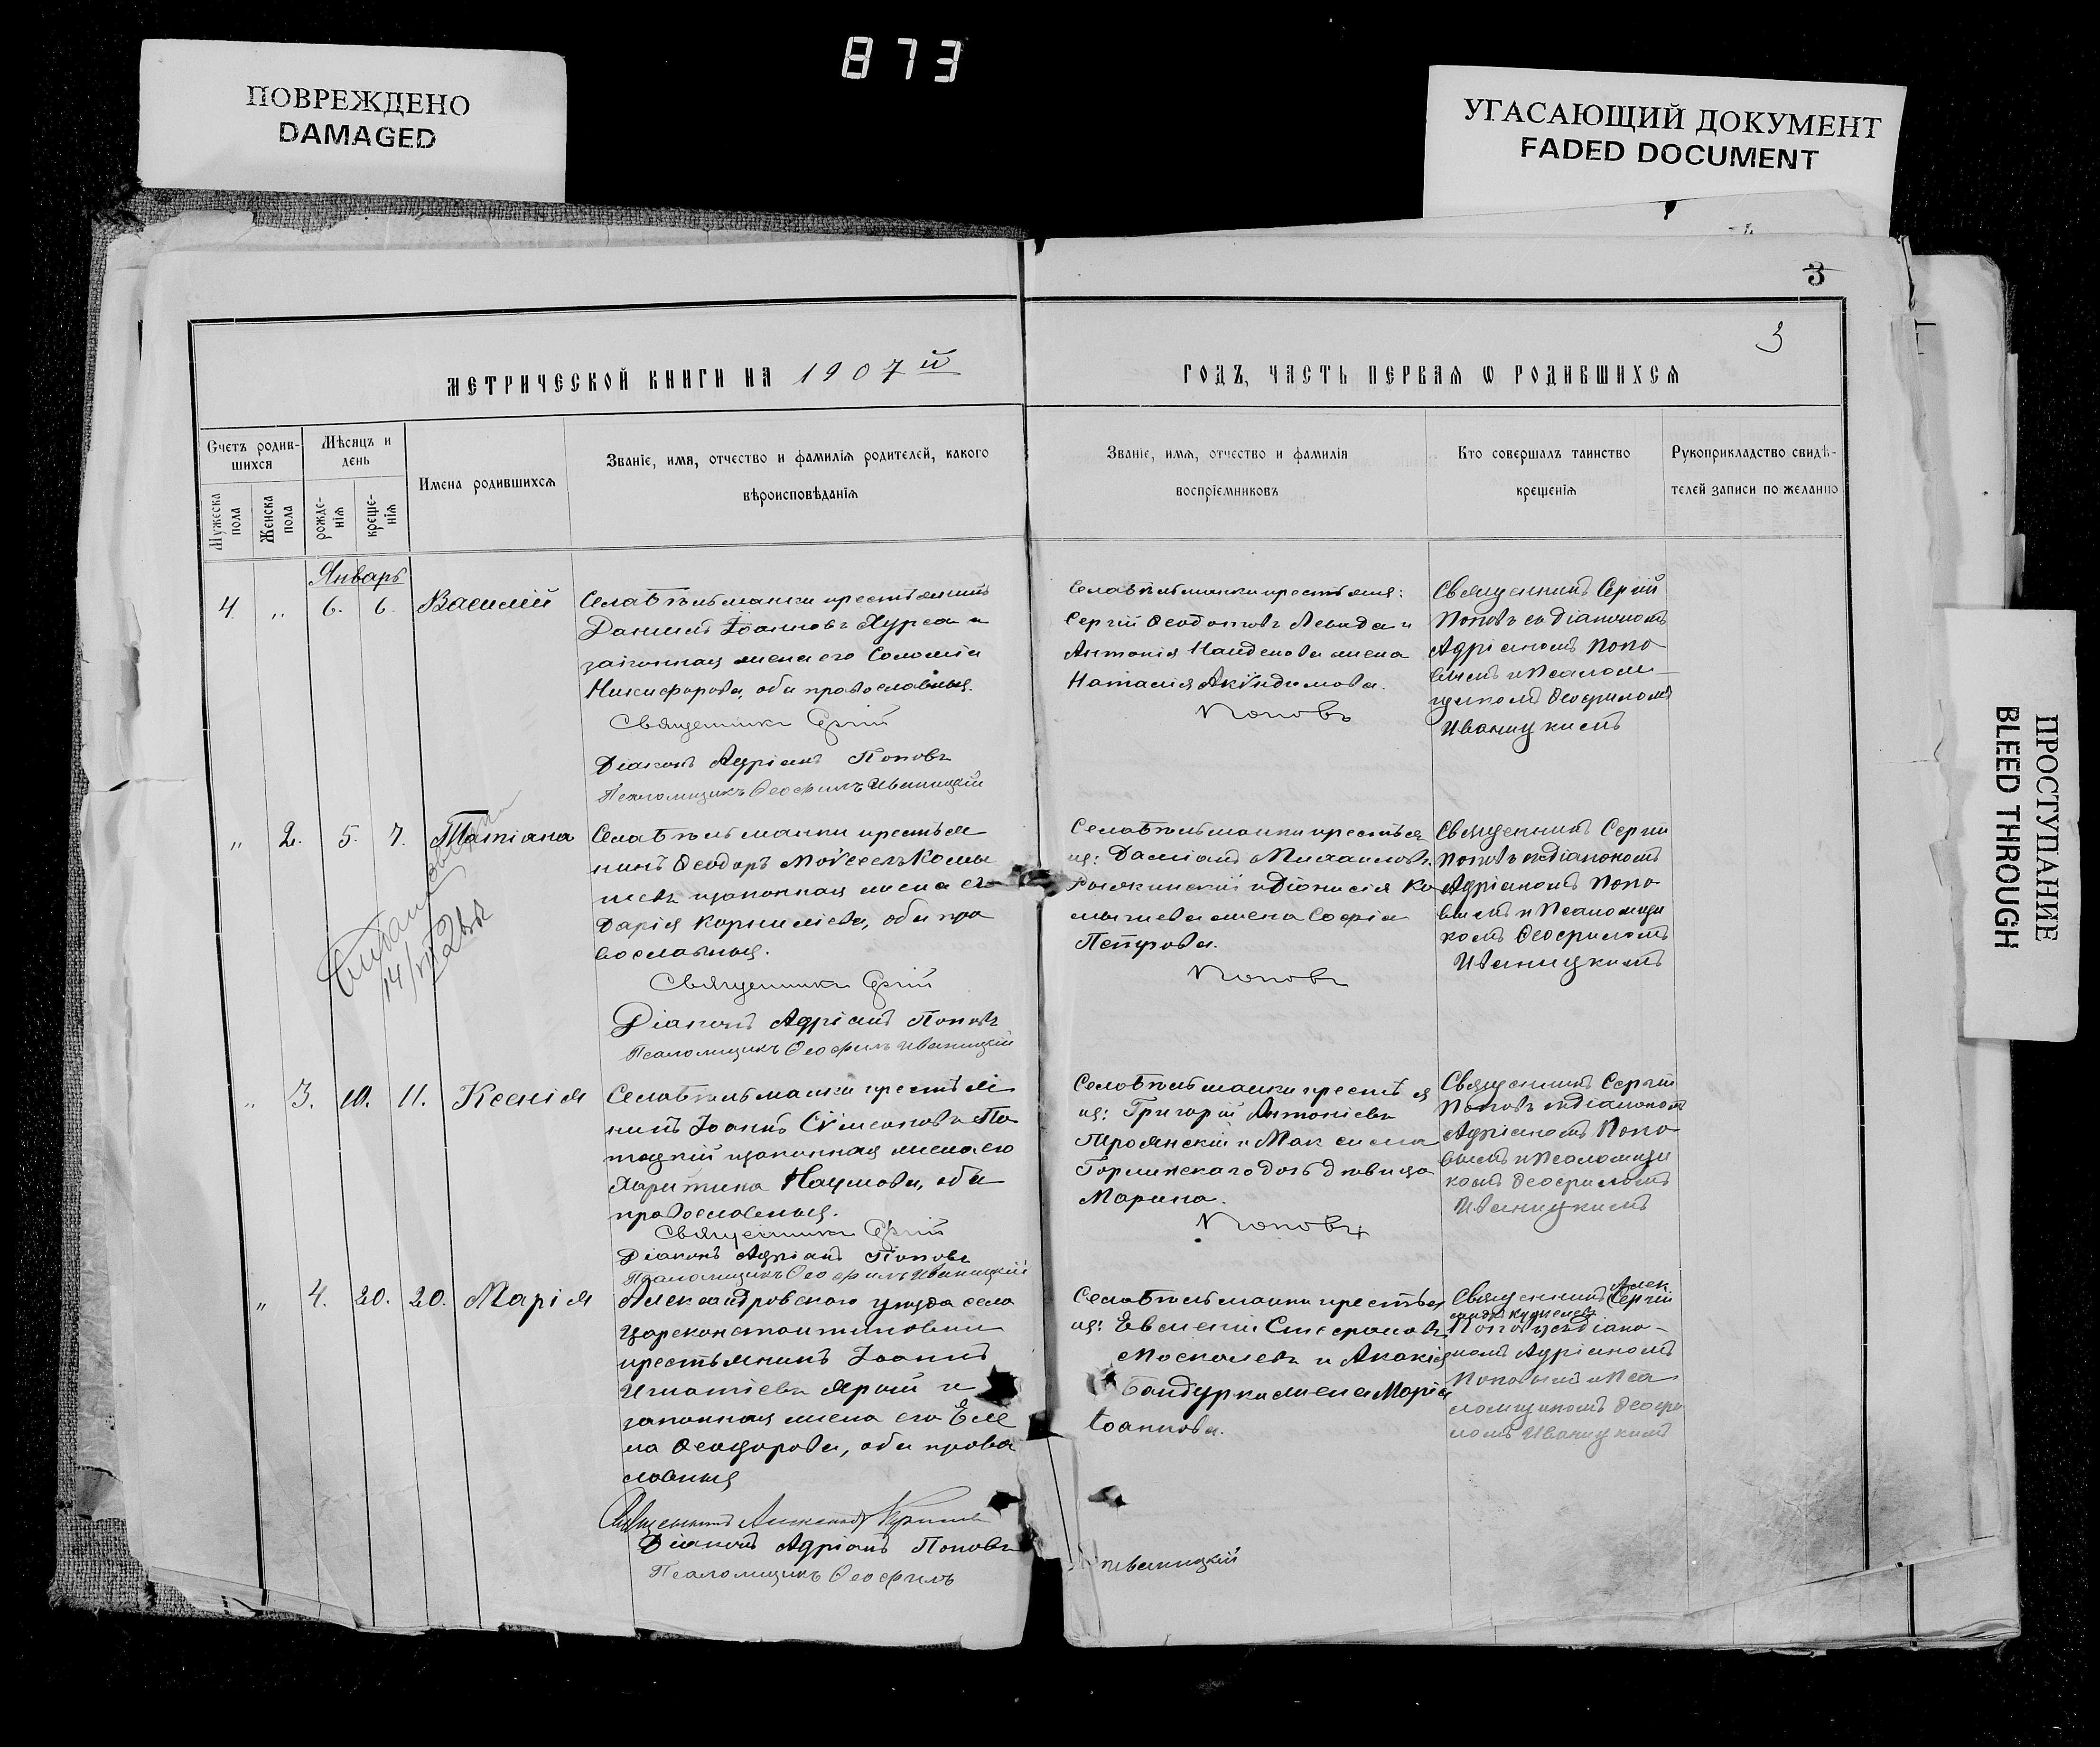 873
ПОВРЕЖДЕНО
DAMAGED
УГАСАЮЩИЙ ДОКУМЕНТ
FADED DOCUMENT
ПРОСТУПАНИЕ
BLEED THROUGH
3
3
МЕТРИЧЕСКОЙ КНИГИ НА 1907й
ГОДЪ, ЧАСТЬ ПЕРВАЯ Ѡ РОДИВШИХСЯ
Счетъ родив-
шихся
Мѣсяцъ и
день
Мужеска
пола
Женска
пола
рожде-
нія
креще-
нія
Имена родившихся
Званіе, имя, отчество и фамилія родителей, какого
вѣроисповѣданія
Званіе, имя, отчество и фамилія
воспріемниковъ
Кто совершалъ таинство
крещенія
Рукоприкладство свидѣ-
телей записи по желанію
Январь
4. „ 6. 6. Василій
крестьянинъ
Даніилъ Іоанновъ Хурса и
законная жена его Соломія
Никифорова, оба православные.
Священникъ Сергій
Діаконъ Адріанъ Поповъ
Псаломщикъ Ѳеофилъ Иваницкій
крестьяне:
Сергій Ѳеодотовъ Левада и
Антонія Найденова жена
Наталія Акѵндимова.
Поповъ
Священникъ Сергій
Поповъ съ діакономъ
Адріаномъ Попо-
вымъ и Псалом-
щикомъ Ѳеофиломъ
Иваницкимъ
„ 2. 5. 7. Татіана
крестья
нинъ Ѳеодоръ Моѵсеевъ
и законная жена его
Дарія Корниліева, оба пра
вославные.
Священникъ Сергій
Діаконъ Адріанъ Поповъ
Псаломщикъ Ѳеофилъ Иваницкій
14/VII 28
крестья
не: Даміанъ Михаиловъ
и Діонисія
жена Софія
Петрова.
Поповъ
Священникъ Сергій
Поповъ съ діакономъ
Адріаномъ Попо
вымъ и Псаломщи
комъ Ѳеофиломъ
Иваницкимъ
„ 3. 10. 11. Ксенія
крестья
нинъ Іоаннъ Сѵмеоновъ По
тоцкій и законная жена его
Харитина Наумова, оба
православные.
Священникъ Сергій
Діаконъ Адріанъ Поповъ
Псаломщикъ Ѳеофилъ Иваницкій
крестья
не: Григорій Антоніевъ
Троянскій и Максима
Горлинскаго дочь дѣвица
Марина.
Поповъ
Священникъ Сергій
Поповъ съ діакономъ
Адріаномъ Попо
вымъ и Псаломщи
комъ Ѳеофиломъ
Иваницкимъ
„ 4. 20. 20. Марія
Александровскаго уѣзда села
Цареконстантиновки
крестьянинъ Іоаннъ
Игнатіевъ Ярый и
законная жена его Еле
на Ѳеодорова, оба право
славные
Священникъ Александръ
Діаконъ Адріанъ Поповъ
Псаломщикъ Ѳеофилъ
Иваницкій
крестья
не: Евменій Стефановъ
Москалевъ и Акакія
Бандурки жена Марія
Іоаннова.
Священникъ Алек
Сергій
Поповъ съ діако-
номъ Адріаномъ
Поповымъ и Пса
ломщикомъ Ѳеофи
ломъ Иваницкимъ